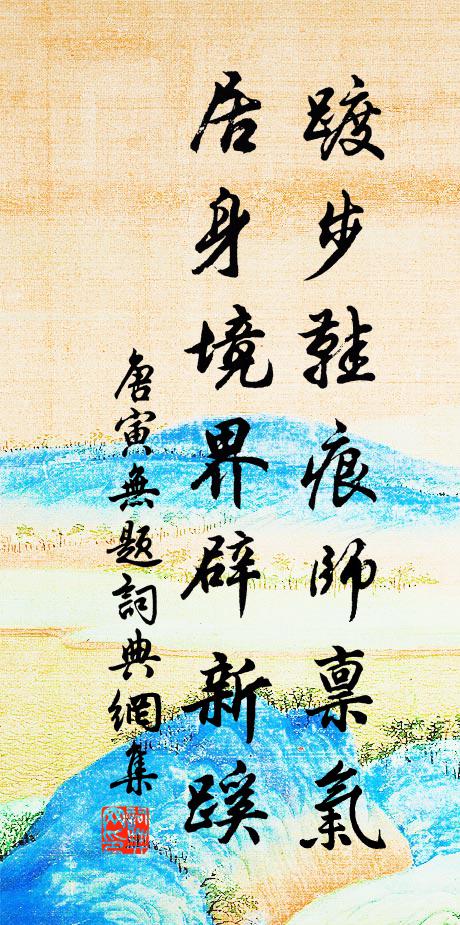 踱步鞋痕師稟氣
居身境界辟新蹊
唐寅無題詞典網集